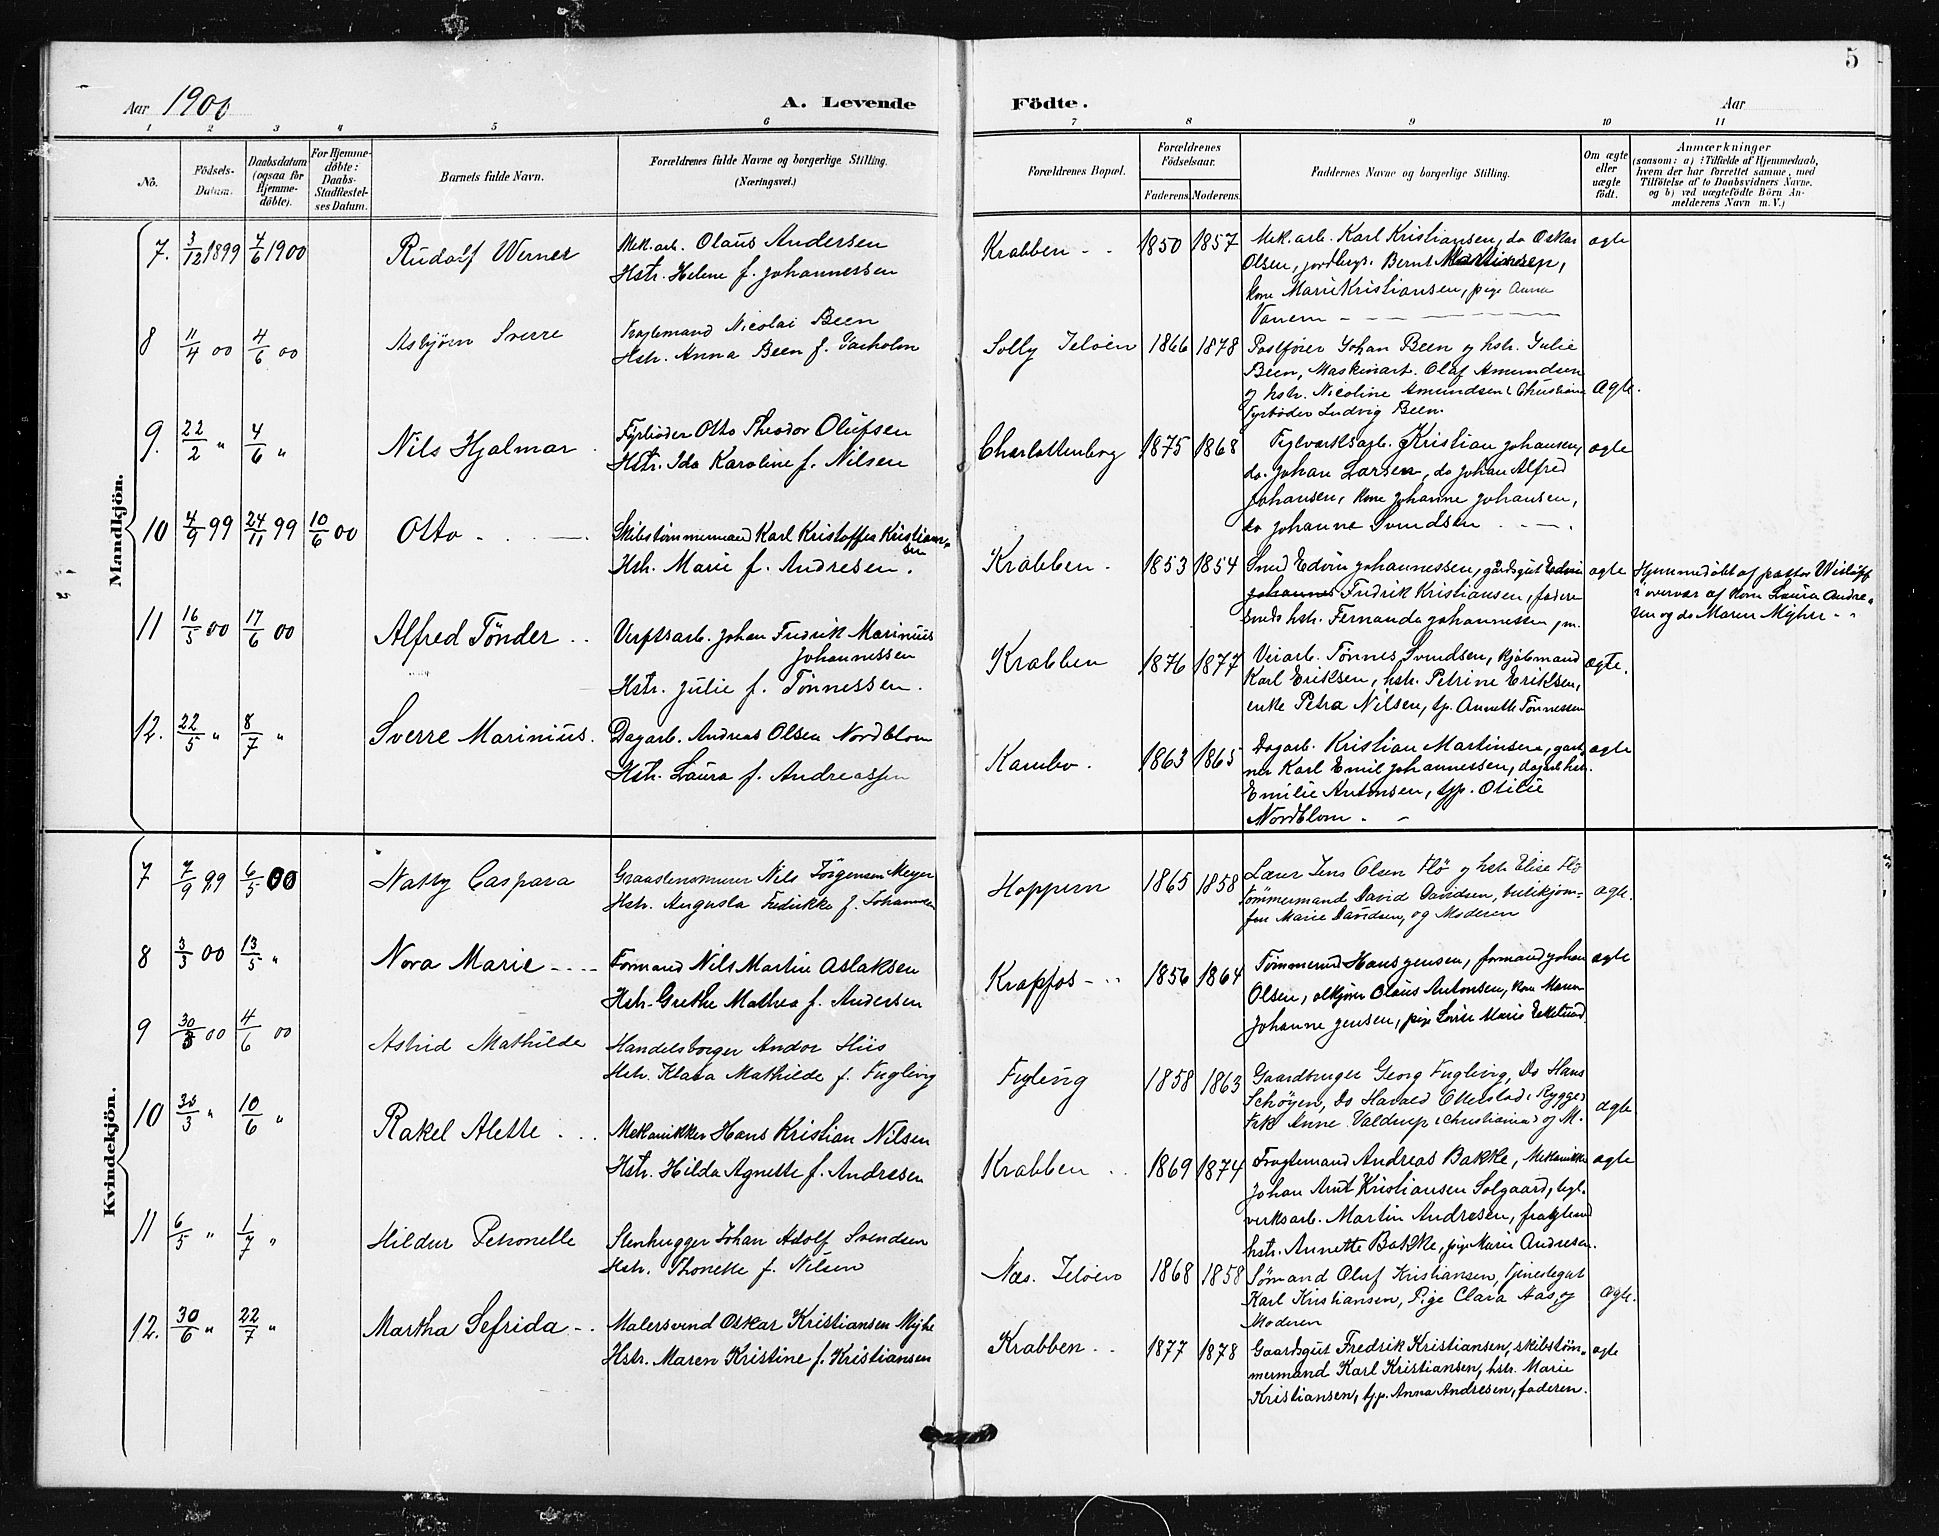 5
Aar 1900
A. Levende
Födte.
Aar
1 2 3 4 5 6 7 8 9 10 11
No.
Födsels-
Datum.
Daabsdatum
(ogsaa for
Hjemme-
döbte).
For Hjemme-
döbte:
Daabs-
Stadfæstel-
ses Datum.
Barnets fulde Navn.
Forældrenes fulde Navne og borgerlige Stilling.
(Næringsvei.)
Forældrenes Bopæl.
Forældrenes
Födselsaar.
Faderens. Moderens.
Faddernes Navne og borgerlige Stilling.
Om ægte
eller
uægte
födt.
Anmærkninger
(saasom: a) i Tilfælde af Hjemmedaab,
hvem der har forrettet samme, med
Tilföielse af to Daabsvidners Navne.
og b) ved uægtefödte Börn An-
melderens Navn m. V.)
Mandkjön.
7. 3/12 1899 4/6 1900 Rudolf Werner
Mek.arb. Olaus Andersen
Hstr. Helene f. Johannessen
Krabben - - 1850 1857
Mek.arb. Karl Kristiansen, do Oskar
Olsen, jordbrgs. Bernt Martinsen,
kone Marie Kristiansen, pige Anna
Vanem - - -
ægte
8 11/4 00 4/6 00 Asbjørn Sverre
Fragtemand Nicolai Been
Hstr. Anna Been f. Garholm
Solly Jeløen 1866 1878
Postfører Johan Been og hstr. Julie
Been, Maskinarb. Olaf Amundsen
og hstr. Nicoline Amundsen (Christiania
Fyrbøder Ludvig Been.
ægte.
9. 22/2 " 4/6 " Nils Hjalmar
Fyrbøder Otto Theodor Olufsen
Hstr. Ida Karoline f. Nilsen
Charlottenborg 1875 1868
Teglværksarb. Kristian Johansen,
do. Johan Larsen, do Johan Alfred
Johansen, kone Johanne Johansen,
do Johanne Svendsen - - -.
ægte
10 4/9 99 24/11 99 10/6 00 Otto - . -
Skibstømmermand Karl Kristoffer Kristian-
sen
Hstr. Marie f. Andresen.
Krabben - 1853 1854
Smed Edvin Johannessen, gårdsgut Edvin
Johannes Fredrik Kristiansen, fader
hstr. Fernanda Johannessen, m.
ægte
Hjemmedøbt af pastor Wisløff
i overvær af kone Laura Andre-
sen og do Maren Myhre - "
11 16/5 00 17/6 00 Alfred Tønder . .
Verftsarb. Johan Fredrik Marinius
Johannessen
Hstr. Julie f. Tønnessen.
Krabben 1876 1877
Veiarb. Tønnes Svendsen, kjøbmand
Karl Eriksen, hstr. Petrine Eriksen,
enke Petra Nilsen, tp. Annette Tønnessen
ægte.
12. 22/5 " 8/7 " Sverre Marinius.
Dagarb. Andreas Olsen Nordblom
Hstr. Laura f. Andreassen
Kambo. 1863 1865
Dagarb. Kristian Martinsen, gart-
ner Karl Emil Johannessen, dagarb.hstr.
Emilie Antonsen, tjp. Otilie
Nordblom. -
ægte
Kvindekjön.
7 7/9 99 6/5 00 Natty Caspara
Graastensmurer Nils Jörgensen Meyer
Hstr. Augusta Fredrikke f. Johannsen
Hoppern 1865 1858
Lærer Jens Olsen Flö og hstr Elise Flö
Tömmermand David Davidsen, butikjom-
fru Marie Davidsen, og Moderen
ægte.
8 3/3 00 13/5 " Nora Marie - - - -
Formand Nils Martin Aslaksen
Hstr. Grethe Mathea f. Andersen
Krapfos - " 1856 1864
Tømmermd Hans Jensen, formand Johan
Olsen, Claus Antonsen, kone Maren
Johanne Jensen, pige Lovise Marie Ekelund.
ægte
9 30/3 00 4/6 00 Astrid Mathilde
Handelsborger Andor Hiis
Hstr. Klara Mathilde f. Fugleivg
Fugleivg 1858 1863
Gaardbruger Georg Fugleivg, Do Hans
Schøyen, Do Harald Otterstad (Rygge)
Frk Anne Valdrup (Christiania) og M.
ægte
10 30/3 " 10/6 " Rakel Alette . . .
Mekanikker Hans Kristian Nilsen
Hstr. Hilda Agnette f. Andresen
Krabben . . 1869 1874
Fragtemand Andreas Bakke, Mekanikker
Johan Arnt Kristiansen Solgaard, tegl-
verksarb. Martin Andresen, fragtemd
hstr. Annette Bakke, pige Marie Andresen.
ægte
11 6/5 " 1/7 " Hildur Petronelle
Stenhugger Johan Adolf Svendsen
Hstr. Thonette f. Nilsen
Næs. Jeløen 1868 1858
Sømand Oluf Kristiansen, Tjenestegut
Karl Kristiansen, Pige Clara Aas, og
Moderen
ægte.
12. 30/6 " 22/7 " Martha Sefrida - .
Malersvend Oskar Kristiansen Myhre
Hstr. Maren Kristine f. Kristiansen
Krabben . . 1877 1878
Gaardsgut Fredrik Kristiansen, skibstøm-
mermand Karl Kristiansen, hstr. Marie
Kristiansen, tjp. Anna Andresen, faderen.
ægte